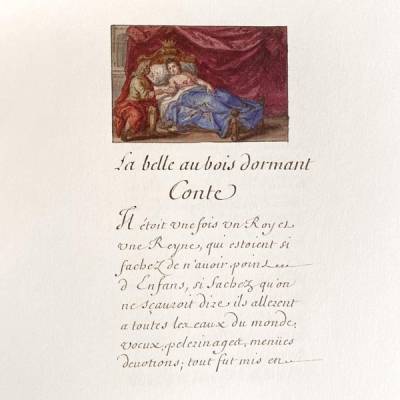 La belle au bois dormant
Conte
Il étoit vne fois vn Roy et
vne Reyne, qui estoient si
fachez de n'auoir point
d Enfans, si fachez qu'on
ne sçauroit dire, ils allerent
a toutes les eaux du monde,
voeux, pelerinages, menües
deuotions; tout fut mis en